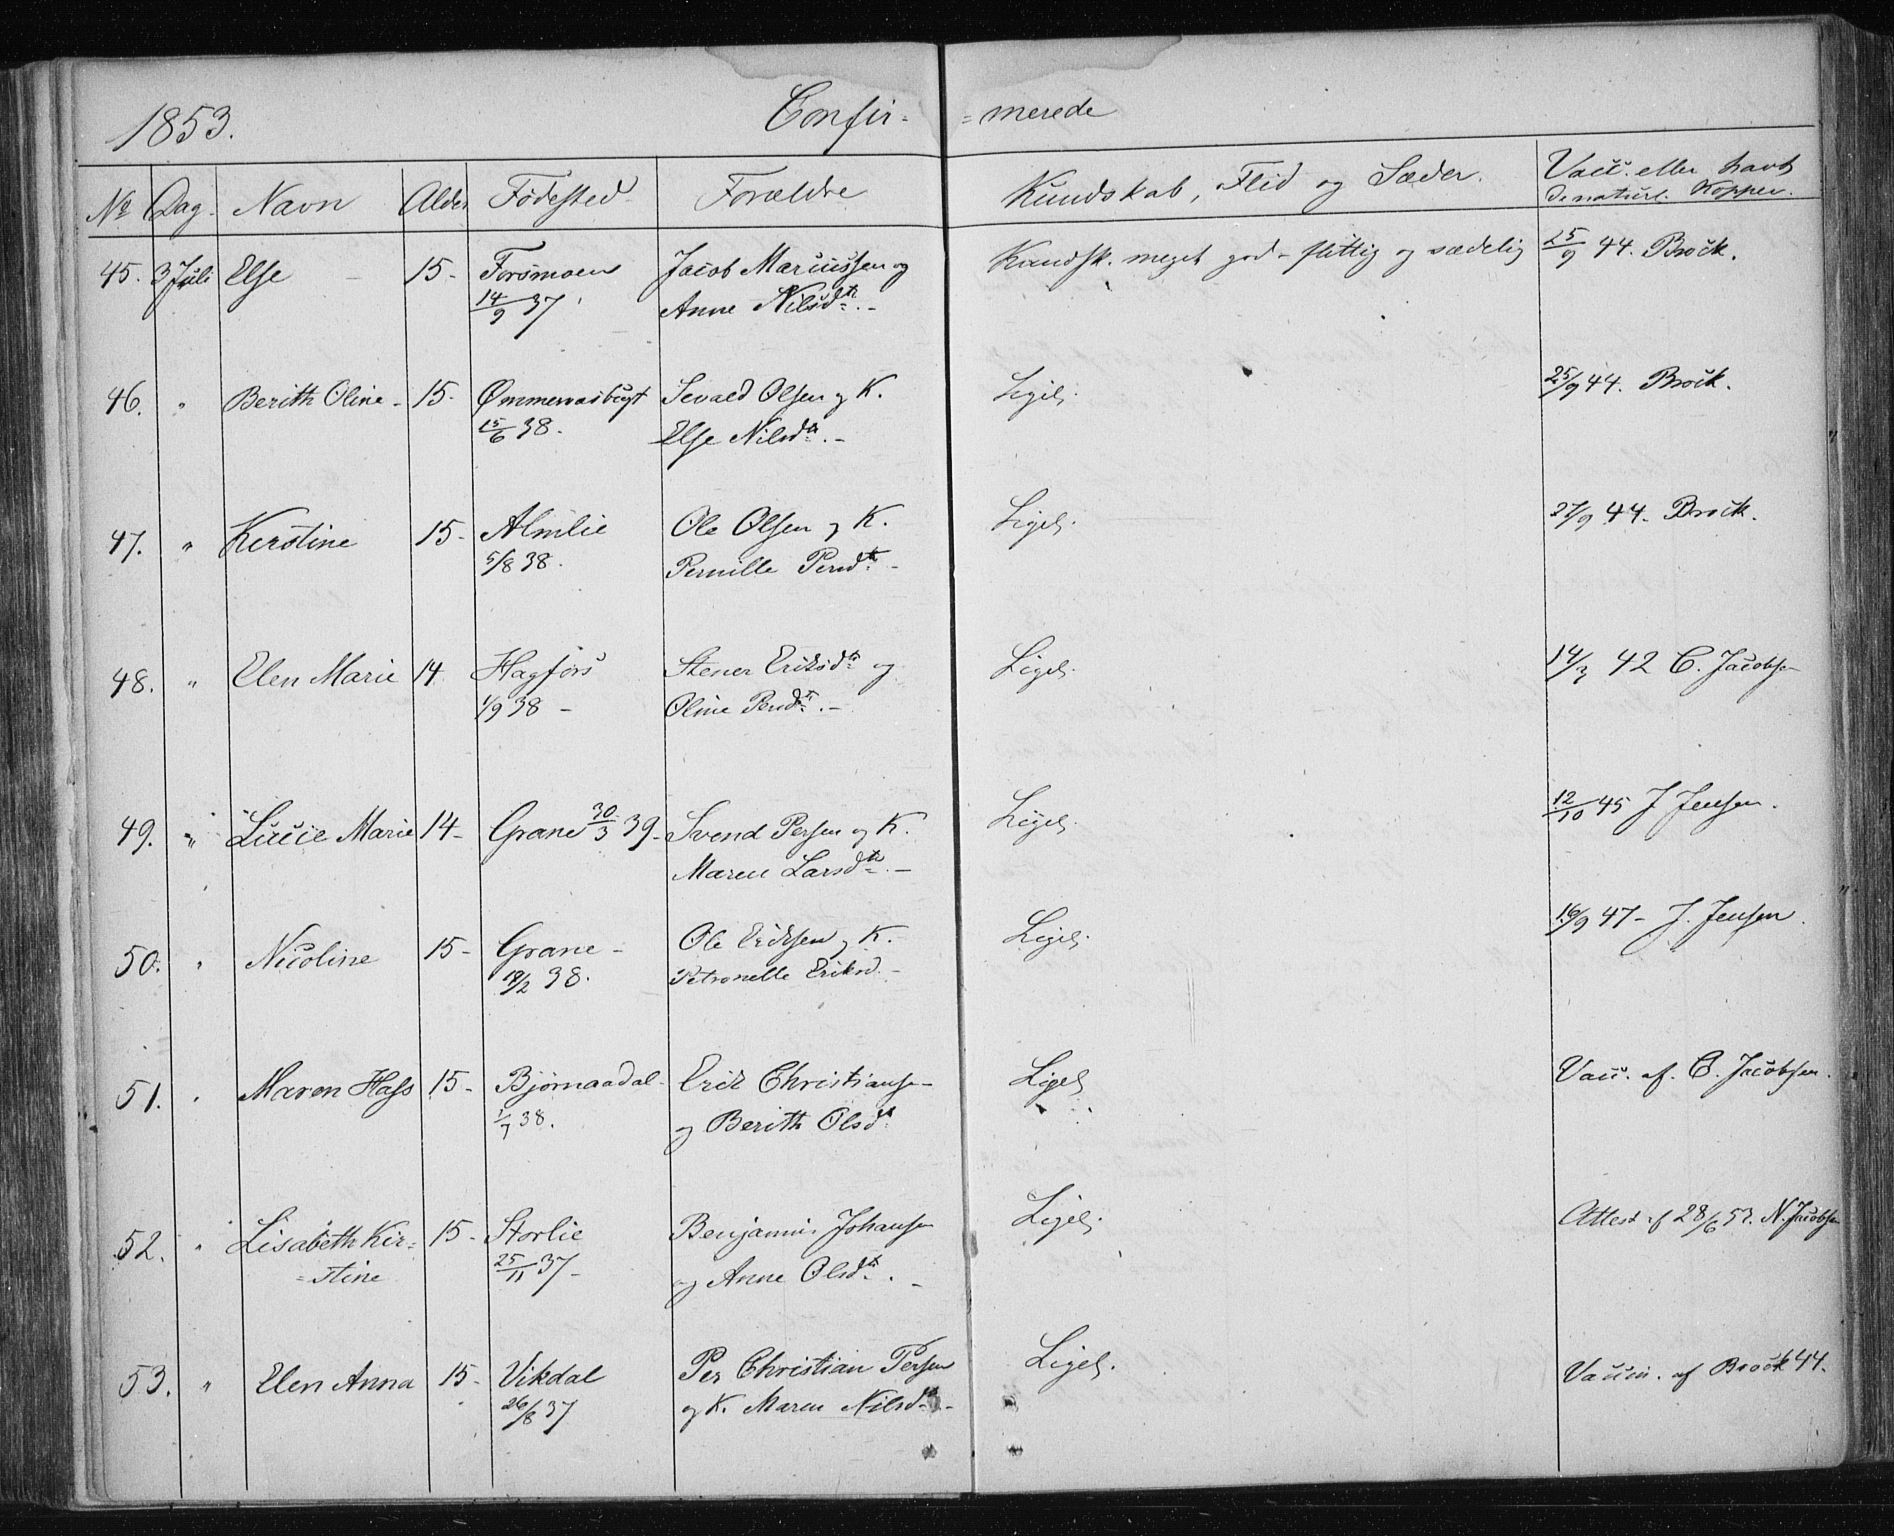 1853. Confir- =merede
No Dag. Navn Alder Fødested Forældre Kundskab, Flid og Sæder. Vacc. eller havt
de naturl. Kopper.
45. 3 Juli Else 15- Forsmoen Jacob Marcussen og Kundsk. meget god - flittig og sædelig 25/9 44. Brock.
14/9 37 Anne Nilsdtr. -
46. " Berith Oline - 15- Ømmervasbugt Sevald Olsen og K. Ligel. 25/9 44. Brock.
15/6 38. Else Nilsdtr. -
47. " Kirstine 15- Almlie Ole Olsen og K. Ligel. 27/9 44. Brock.
5/8 38. Pernille Persdtr -
48. " Elen Marie 14 Hagfors Stener Eriksdtr og Ligel. 14/3 42 C. Jacobsen
1/9 38 - Oline Persdtr. -
49. " Lucie Marie 14- Grane 30/3 39- Svend Persen og K. Ligel. 12/10 45 J Jensen.
Maren Larsdtr. -
50. " Nicoline 15- Grane - Ole Ericksen og K. Ligel. 16/9 47- J. Jensen.
/2 38. Petronelle Eriksd. -
51. " Maren Hass 15- Bjørnaadal- Erik Christiansen Ligel Vacc. af. C. Jacobsen.
1/7 38. og Berith Olsdtr
52. " Lisabeth Kir= 15- Storlie Benjamin Johansen Ligel. Attest af 28/6 53. N. Jacobsen
=stine 25/11 37- og Anne Olsdtr. -
53. " Elen Anna 15- Vikdal Per Christian Persen Ligel. Vaccin. af Brock 44.
26/8 37 og K. Maren Nilsdtr. -